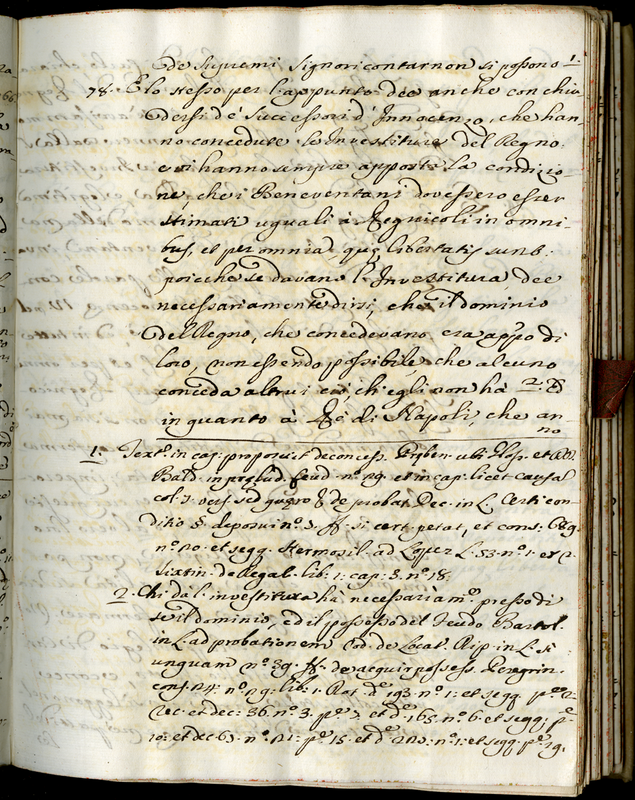 de Supremi Signori contar non si possono 1.
78. E lo stesso per l'appunto dee anche conchiu
dersi de' Successori d'Innocenzo, che han
no concedute le Investiture del Regno
e vi hanno sempre apposta la condizio
ne, che i Beneventani dovessero esser
stimati uguali à Regnicoli in omni
bus, et per omnia, quę libertatis sunt.
poiche se davano l'Investitura, dee
necessariamente dirsi, che il dominio
del Regno, che concedevano era appo di
loro, non essendo possibile, che alcuno
conceda altrui ciò, ch'egli non hà 2. E
in quanto à Rè di Napoli, che an
no
1. Text. in cap. proposuit de concess. Preben. ubi Gloss. et
Bald. in prelud. feud. nº. 29. et in cap. licet causa
col. 3. vers. sed quęro de probat. Dec. in L. Certi con
ditio §. deposui nº. 3. ff. si cert. petat, et cons. 689.
nº. 20. et segg. Hermosil. ad Lopez L. 53. nº. 1. et 2.
Sixtin. de Regal. lib. 1. cap. 3. nº. 18.
2. Chi dà l'investitura hà necessariamᵉ. presso di
se il dominio, ed il possesso del feudo Bartol.
in L. ad probationem Cod. de Locat. Rip. in L. si
unquam nº. 39. ff. de acquir. possess. Peregrin.
cons. 24. nº. 29. lib. 1. Rot. dᵉ. 193. nº. 1. et segg. pᵉ. 2.
rec. et dec. 36. nº. 3. pᵉ. 7. et dᵉ. 165. nº. 6. et segg. pᵉ.
10. et dec. 63. nº. 21. pᵉ. 15. et dᵉ. 223. nº. 1. et segg. pᵉ. 19.